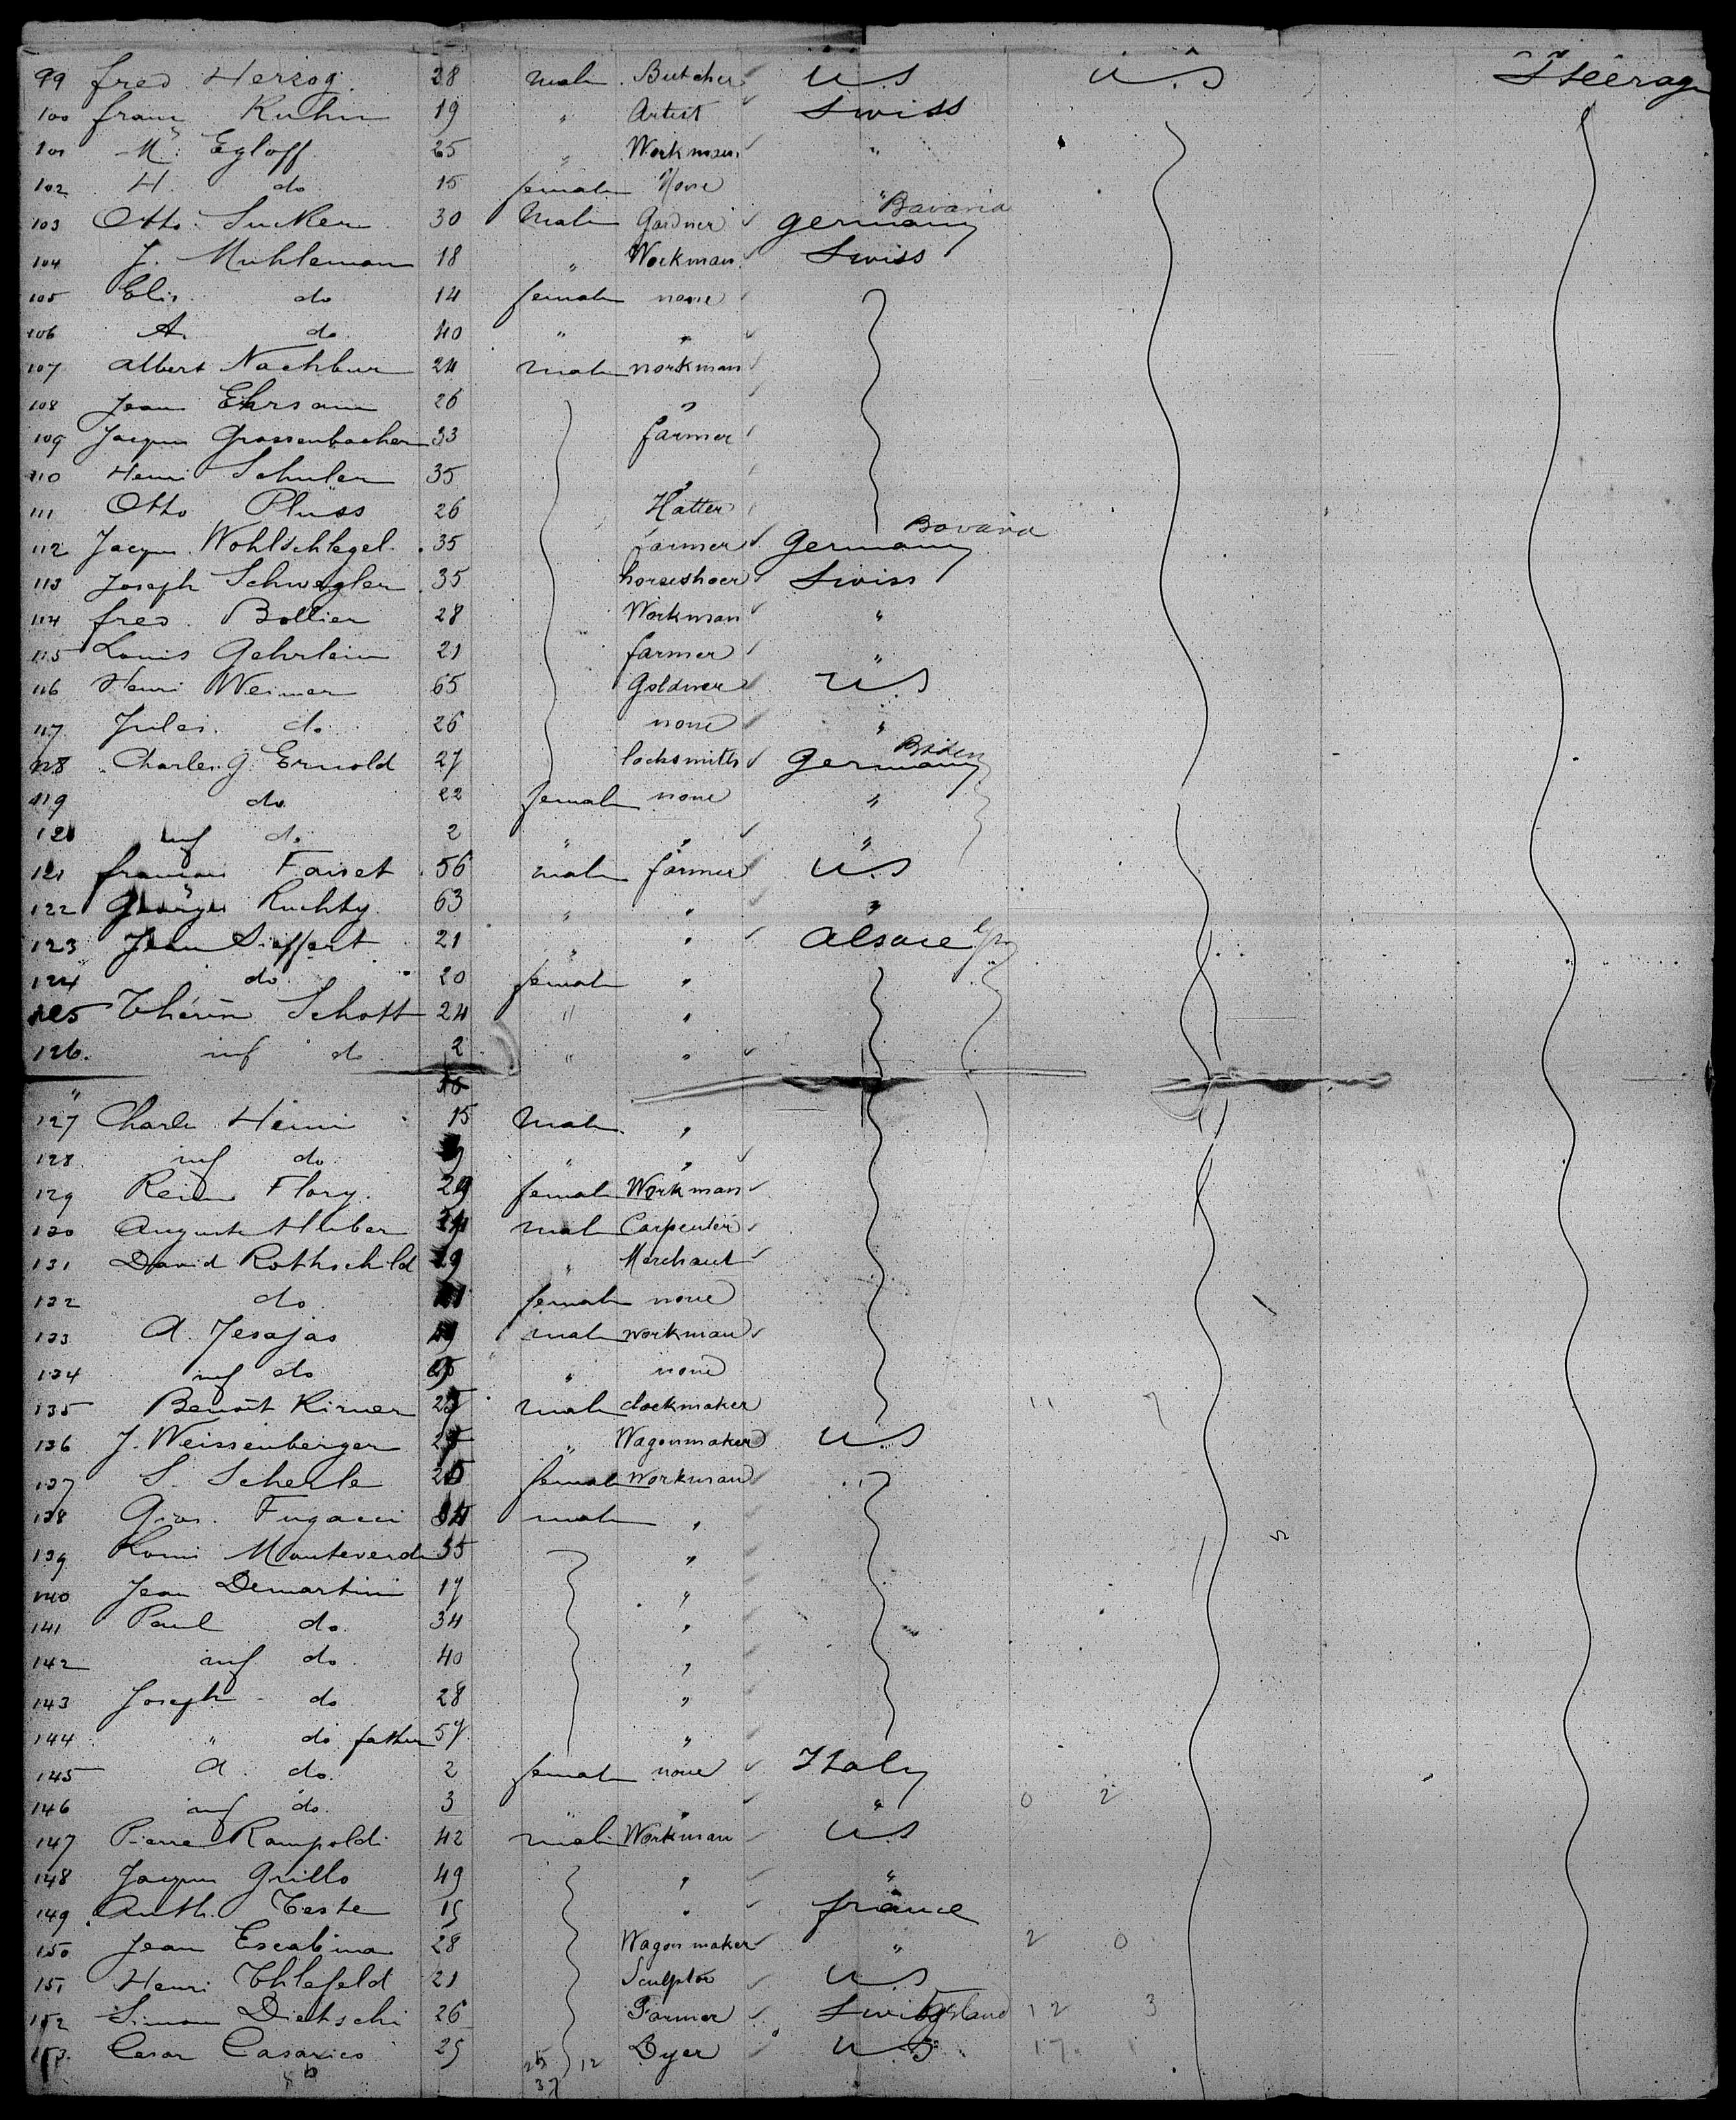 99 fred Herzog 28 male Butcher U.S U.S Steerage
100 franz Kuhn 19 " Artist Swiss
101 M. Egloff 25 " Workman "
102 H. do 15 female None "
103 Otto Sucker 30 Male Gardner germany Bavaria
104 J. Muhleman 18 " Workman Swiss
105 Elis. do 14 female none
106 A. do 40 " "
107 albert Nachbur 24 male workman
108 Jean Ehrsam 26 "
109 Jacques Grossenbacher 33 farmer
110 Henri Schuler 35 "
111 Otto Pluss 26 Hatter
112 Jacques Wohlschlegel 35 farmer Germany Bavaria
113 Joseph Schwegler 35 horseshoer Swiss
114 fred. Bollier 28 Workman "
115 Louis Gehrlein 21 farmer "
116 Henri Weimer 65 U.S
117 Jules do 26 none "
118 Charles G. Ernold 27 locksmith Germany Baden
119 do 22 female none "
120 inf do 2 " " "
121 francois Fairet 56 male farmer U.S
122 Georges Ruchty 63 " " "
123 Jean Sieffert 21 " " Alsace
124 do 20 female "
125 Schott 24 " "
126. inf do 2 " "
"
127 Charles Henri 15 Male "
128 inf do " "
129 Flory 29 female Workman
130 Auguste Huber male Carpenter
131 David Rothschild 29 " Merchant
132 do female none
133 A. Jesajas male workman
134 inf do " none
135 Benoit Kirner male clockmaker 11 7
136 J. Weissenberger " Wagonmaker U.S
137 S. Scherle female workman
138 Fugacci male "
139 Monteverde 35 "
140 Jean Demartini 17 "
141 Paul do 34 "
142 inf do 40 "
143 Joseph do 28 "
144 " do father 57 "
145 A. do. 2 female none Italy
146 inf do. 3 " " " 0 2
147 Pierre Rampoldi 42 male Workman U.S
148 Jacques Grillo 49 " "
149 Anth. Teste " france
150 Jean Escabina 28 Wagon maker " 2 0
151 Henri 21 Sculptor U.S
152 Simon Dietschi 26 Farmer Switzerland 12 3
153. Cesar Casarico 25 Dyer U S. 17
25 12
37